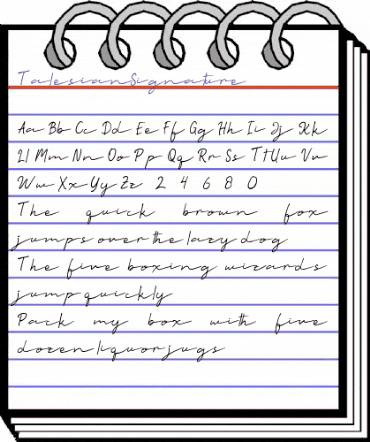 TalesianSignature
Aa Bb Cc Dd Ee Ff Gg Hh Ii Jj Kk
Ll Mm Nn Oo Pp Qq Rr Ss Tt Uu Vv
Ww Xx Yy Zz 2 4 6 8 0
The quick brown fox
jumps over the lazy dog
The five boxing wizards
jump quickly
Pack my box with five
dozen liquor jugs